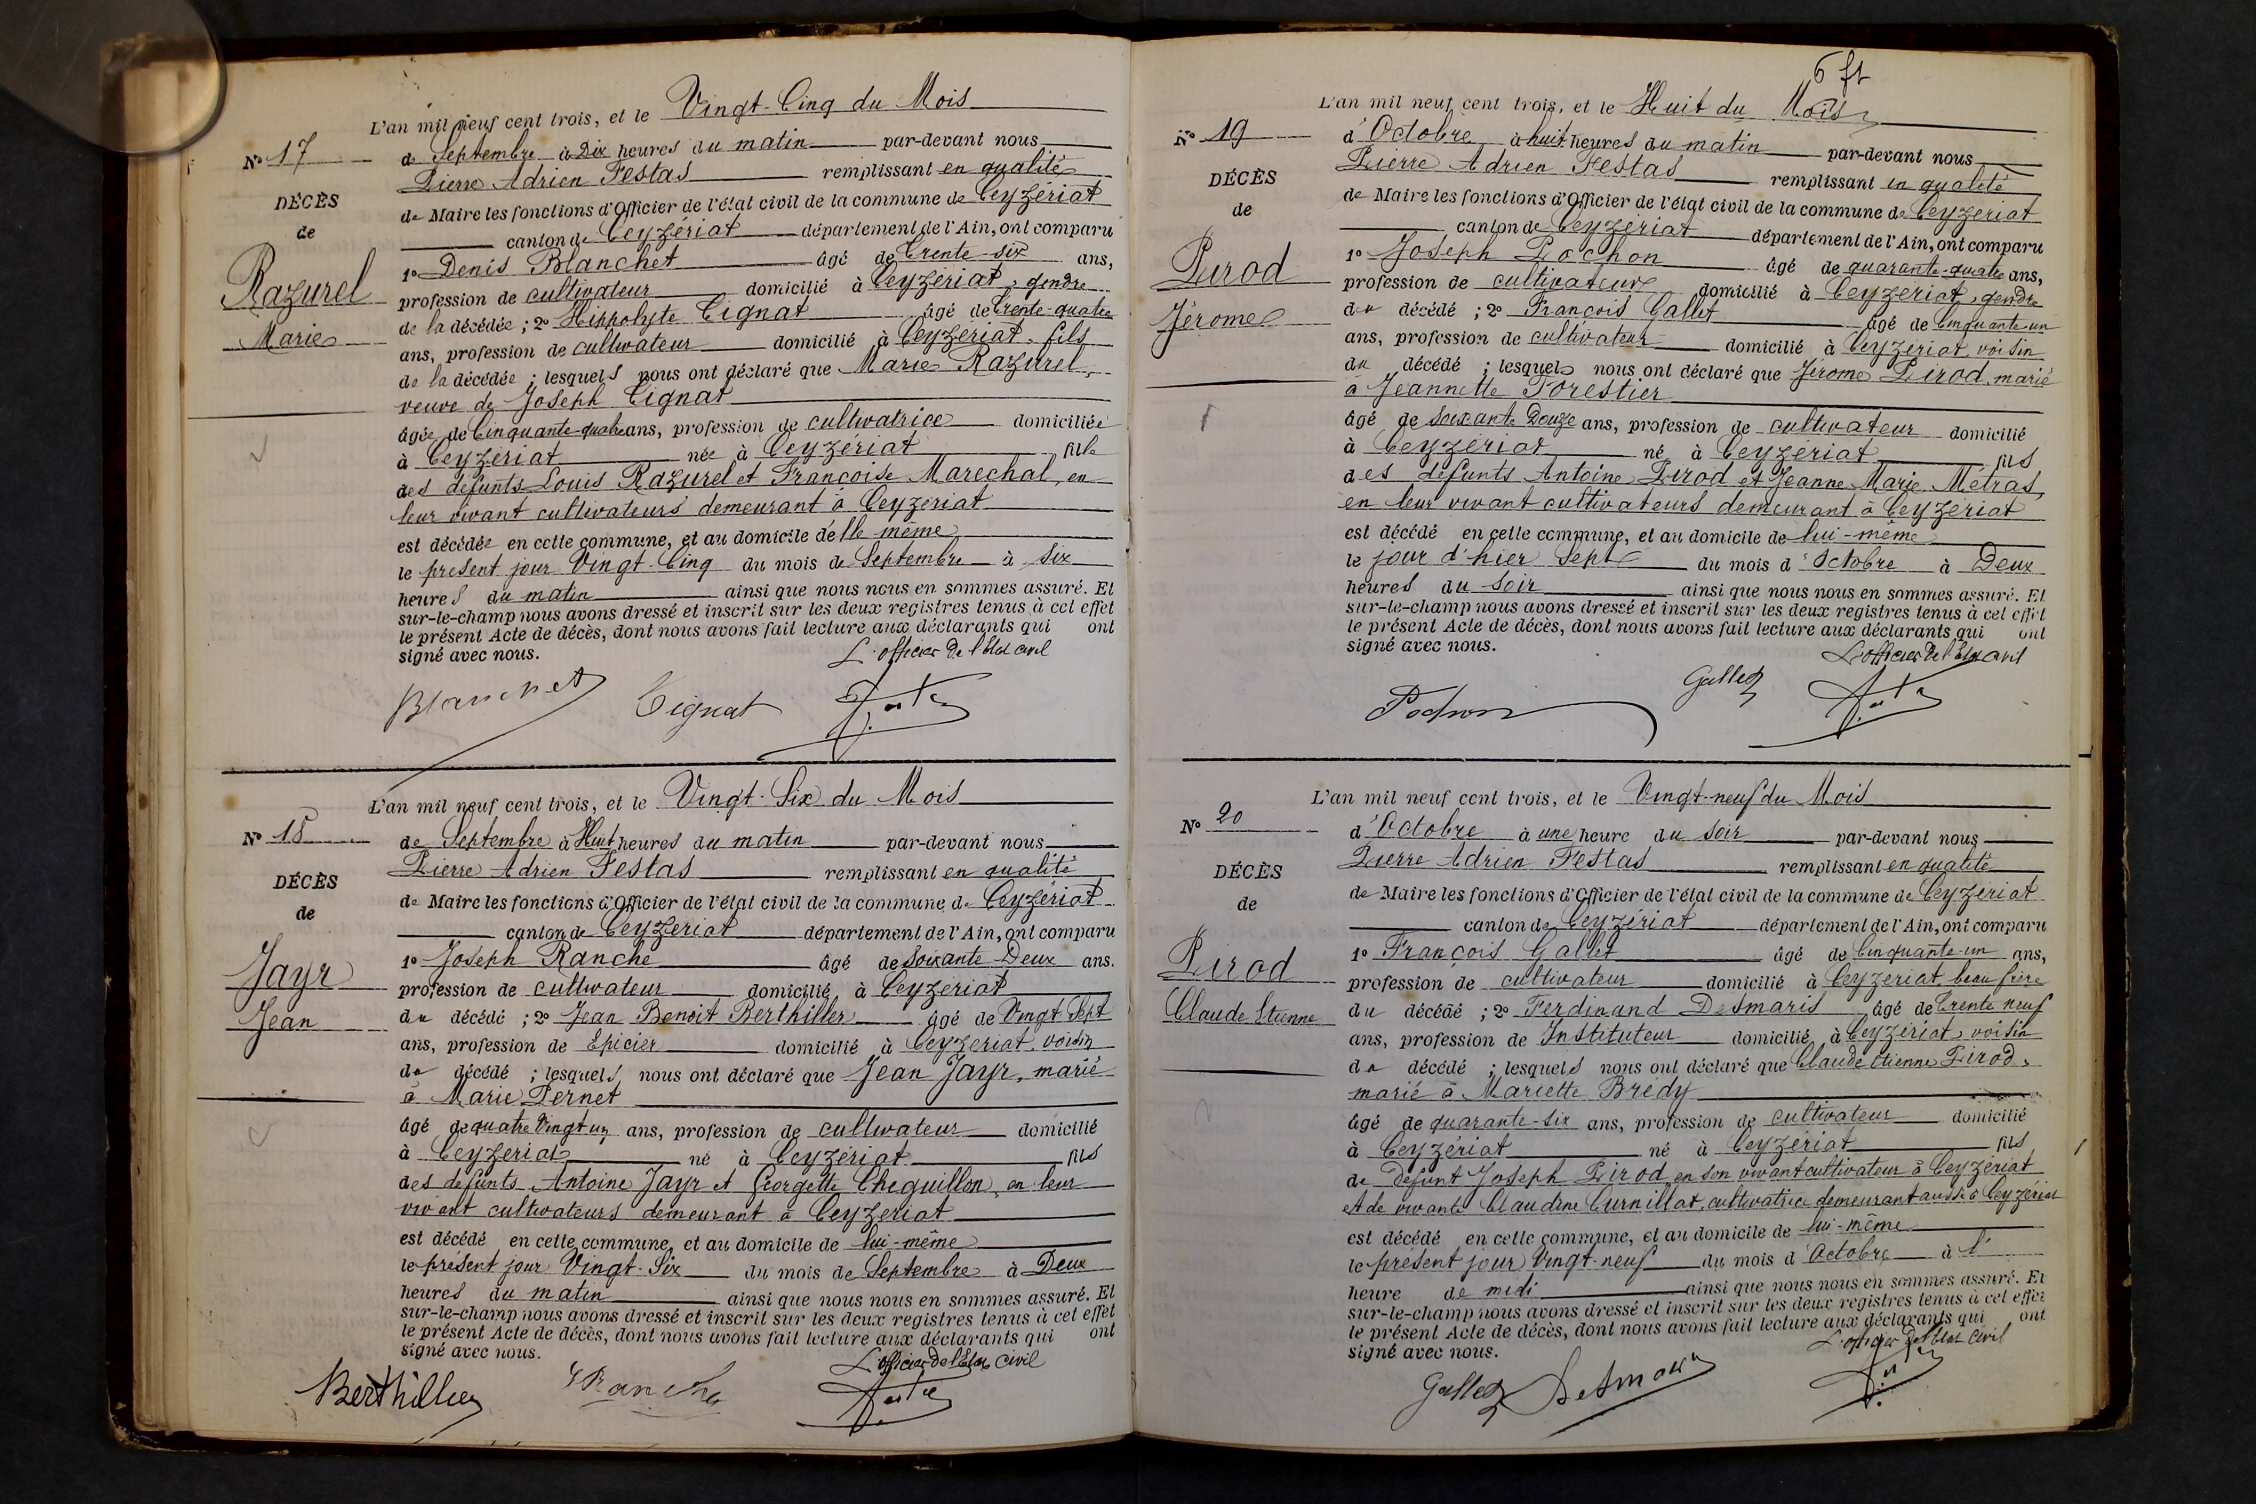 L'an mil neuf cent trois, et le Vingt-Cinq du Mois
No 17
de Septembre à Dix heures du matin par-devant nous
Pierre Adrien Festas remplissant en qualité
DÉCÈS
de Maire les fonctions d'Officier de l'état civil de la commune de Ceyzériat
de
canton de Ceyzériat département de l'Ain, ont comparu
1o Denis Blanchet âgé de Trente-six ans,
Razurel
profession de cultivateur domicilié à Ceyzériat, gendre
de la décédée ; 2o Hippolyte Tignat âgé de Trente-quatre
Marie
ans, profession de cultivateur domicilié à Ceyzeriat, fils
de la décédée ; lesquels nous ont déclaré que Marie Razurel,
veuve de Joseph Tignat
âgée de Cinquante-quatre ans, profession de cultivatrice domiciliée
à Ceyzériat née à Ceyzériat fille
des défunts Louis Razurel et Françoise Marechal, en
leur vivant cultivateurs demeurant à Ceyzeriat
est décédée en cette commune, et au domicile d'elle même
le présent jour Vingt-Cinq du mois de Septembre à Six
heures du matin ainsi que nous nous en sommes assuré. Et
sur-le-champ nous avons dressé et inscrit sur les deux registres tenus à cet effet
le présent Acte de décès, dont nous avons fait lecture aux déclarants qui ont
signé avec nous.
L'officier de l'Etat civil
Blanchet Tignat
L'an mil neuf cent trois, et le Vingt-Six du Mois
No 18
de Septembre à Huit heures du matin par-devant nous
Pierre Adrien Festas remplissant en qualité
DÉCÈS
de Maire les fonctions d'Officier de l'état civil de la commune de Ceyzériat
de
canton de Ceyzeriat département de l'Ain, ont comparu
1o Joseph Ranche âgé de Soixante-Deux ans.
Jayr
profession de cultivateur domicilié à Ceyzeriat
Jean
du décédé ; 2o Jean Benoit Berthillier âgé de Vingt Sept
ans, profession de Epicier domicilié à Ceyzeriat, voisin
du décédé ; lesquels nous ont déclaré que Jean Jayr, marié
à Marie Pernet
âgé de quatre Vingt un ans, profession de cultivateur domicilié
à Ceyzeriat né à Ceyzériat fils
des défunts Antoine Jayr et Georgette Chequillon, en leur
vivant cultivateurs demeurant à Ceyzeriat
est décédé en cette commune, et au domicile de lui-même
le présent jour Vingt-Six du mois de Septembre à Deux
heures du matin ainsi que nous nous en sommes assuré. Et
sur-le-champ nous avons dressé et inscrit sur les deux registres tenus à cet effet
le présent Acte de décès, dont nous avons fait lecture aux déclarants qui ont
signé avec nous.
L'officier de l'Etat civil
Berthillier Ranche
6
L'an mil neuf cent trois, et le Huit du Mois
No 19
d'Octobre à huit heures du matin par-devant nous
Pierre Adrien Festas remplissant en qualité
DÉCÈS
de Maire les fonctions d'Officier de l'état civil de la commune de Ceyzeriat
de
canton de Ceyzériat département de l'Ain, ont comparu
1o Joseph Pochon âgé de quarante-quatre ans,
Pirod
profession de cultivateur domicilié à Ceyzériat, gendre
Jérome
du décédé ; 2o François Gallet âgé de Cinquante-un
ans, profession de cultivateur domicilié à Ceyzeriat, voisin
du décédé ; lesquels nous ont déclaré que Jérome Pirod, marié
à Jeannette Forestier
âgé de soixante Douze ans, profession de cultivateur domicilié
à Ceyzériat né à Ceyzériat fils
des défunts Antoine Pirod et Jeanne Marie Métras,
en leur vivant cultivateurs demeurant à Ceyzériat
est décédé en cette commune, et au domicile de lui-même
le jour d'hier Sept du mois d'Octobre à Deux
heures du Soir ainsi que nous nous en sommes assuré. Et
sur-le-champ nous avons dressé et inscrit sur les deux registres tenus à cet effet
le présent Acte de décès, dont nous avons fait lecture aux déclarants qui ont
signé avec nous.
L'officier de l'Etat civil
Pochon Gallet
L'an mil neuf cent trois, et le Vingt-neuf du Mois
No 20
d'Octobre à une heure du Soir par-devant nous
Pierre Adrien Festas remplissant en qualité
DÉCÈS
de Maire les fonctions d'Officier de l'état civil de la commune de Ceyzeriat
de
canton de Ceyzériat département de l'Ain, ont comparu
1o François Gallet âgé de Cinquante-un ans,
Pirod
profession de cultivateur domicilié à Ceyzeriat, beau frère
Claude Etienne
du décédé ; 2o Ferdinand Desmaris âgé de Trente neuf
ans, profession de Instituteur domicilié à Ceyzériat, voisin
du décédé ; lesquels nous ont déclaré que Claude Etienne Pirod,
marié à Mariette Brédy
âgé de quarante-six ans, profession de cultivateur domicilié
à Ceyzériat né à Ceyzériat fils
de défunt Joseph Pirod, en son vivant cultivateur à Ceyzériat
et de vivante Claudine Curnillat, cultivatrice demeurant aussi à Ceyzériat
est décédé en cette commune, et au domicile de lui-même
le présent jour Vingt-neuf du mois d'Octobre à l'
heure de midi ainsi que nous nous en sommes assuré. Et
sur-le-champ nous avons dressé et inscrit sur les deux registres tenus à cet effet
le présent Acte de décès, dont nous avons fait lecture aux déclarants qui ont
signé avec nous.
L'officier de l'Etat civil
Gallet Desmaris